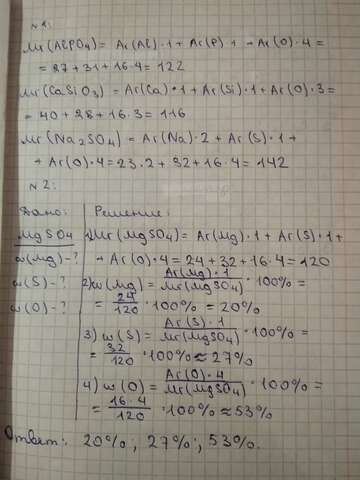 № 1:
Mr(AlPO4) = Ar(Al)·1 + Ar(P)·1 + Ar(O)·4 =
= 27 + 31 + 16·4 = 122
Mr(CaSiO3) = Ar(Ca)·1 + Ar(Si)·1 + Ar(O)·3 =
= 40 + 28 + 16·3 = 116
Mr(Na2SO4) = Ar(Na)·2 + Ar(S)·1 +
+ Ar(O)·4 = 23·2 + 32 + 16·4 = 142
№ 2:
Дано: Решение:
MgSO4 1) Mr(MgSO4) = Ar(Mg)·1 + Ar(S)·1 +
w(Mg) - ? + Ar(O)·4 = 24 + 32 + 16·4 = 120
w(S) - ? 2) w(Mg) = Ar(Mg)·1 / Mr(MgSO4) · 100% =
w(O) - ? = 24/120 · 100% = 20%
3) w(S) = Ar(S)·1 / Mr(MgSO4) · 100% =
= 32/120 · 100% ≈ 27%
4) w(O) = Ar(O)·4 / Mr(MgSO4) · 100% =
= 16·4/120 · 100% ≈ 53%
Ответ: 20%; 27%; 53%.